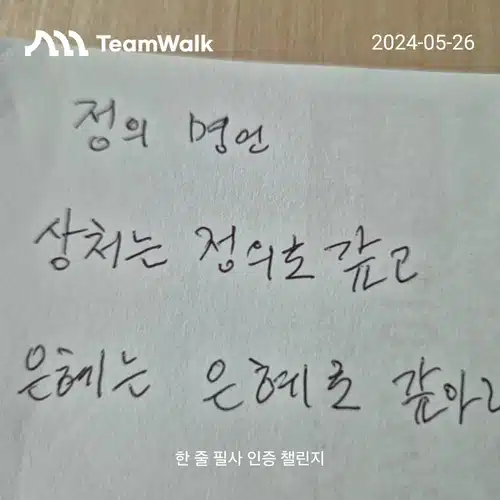 TeamWalk
2024-05-26
정의 명언
상처는 정의로 갚고
은혜는 은혜로 갚아라
한 줄 필사 인증 챌린지